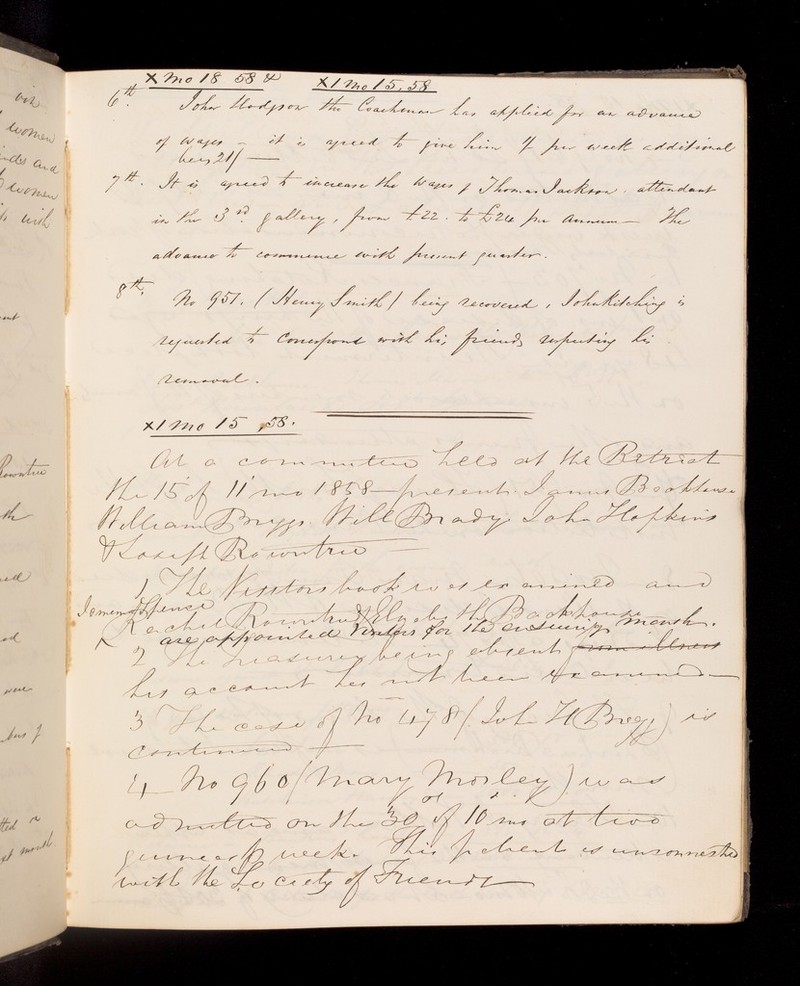 X Mo 18 58 & XI Mo 15. 58
6th. John Hodgson the Coachman has applied for an advance
of wages – it is agreed to give him 1/ per week additional
being 21/ —
7th. It is agreed to increase the Wages of Thomas Jackson attendant
in the 3rd gallery, from £22. to £24 per Annum — The
advance to commence with present quarter.
8th. No 951. (Henry Smith) being recovered, John Kitching is
requested to Correspond with his friends respecting his
removal.
XI Mo 15, 58.
At a committee held at the Retreat
the 15 of 11 mo 1858 — present James Backhouse
William Briggs Will Brady John Hopkins
& Joseph Rowntree —
1 The Visitors book was examined and
Jemima Spence
Rachel Rowntree & Elizabeth Backhouse
are appointed Visitors for the ensuing month.
2 The Treasurer being absent from illness
his account has not been examined —
3 The case of No 478 (John H Bragg) is
continued —
4 No 960 (Mary Morley) was
admitted on the 30 of 10 mo at two
guineas p week. This patient is unconnected
with the Society of Friends —
women
and
women
with
Rowntree
the
were
month